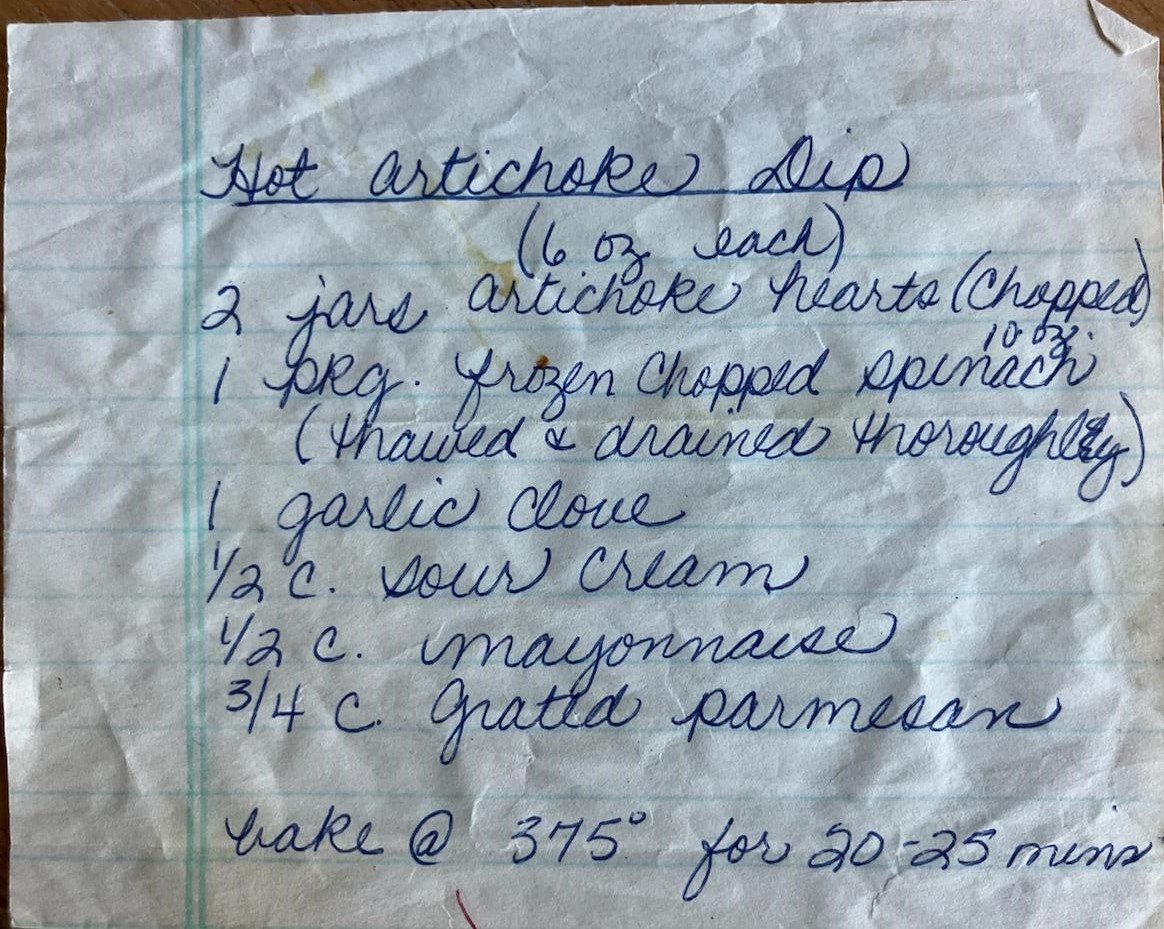 Hot Artichoke Dip
(6 oz each)
2 jars artichoke hearts (Chopped)
10 oz.
1 pkg. frozen chopped spinach
(thawed & drained thoroughly)
1 garlic clove
1/2 c. sour cream
1/2 c. mayonnaise
3/4 c. grated parmesan
bake @ 375° for 20-25 mins